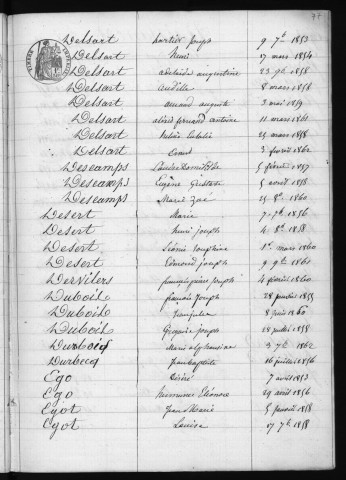 Delsart joseph 9 7bre 1853
Delsart henri 17 mars 1854
Delsart adelaïde augustine 23 9bre 1858
Delsart 8 mars 1858
Delsart armand auguste 3 mai 1859
Delsart fernand antoine 11 mars 1861
Delsart 25 mars 1858
Delsart Ernest 3 fevrier 1862
Descamps 5 fevrier 1857
Descamps Eugène 5 avril 1858
Descamps Marie Zoé 25 8bre 1860
Desert Marie 7 7bre 1856
Desert henri joseph 4 8bre 1858
Desert Léonie Josephine 1er mars 1860
Desert Edmond joseph 9 9bre 1861
Dervilers joseph 4 fevrier 1860
Duboil françois joseph 28 janvier 1855
Duboil 8 juin 1860
Duboil Grégoire joseph 28 juillet 1858
Durbois Marie alphonsine 3 7bre 1862
Durbecq Jean baptiste 16 juillet 1856
Ego Désiré 7 avril 1853
Ego Eléonore 29 avril 1856
Egot Jean Marie 5 janvier 1858
Egot Louise 17 7bre 1858